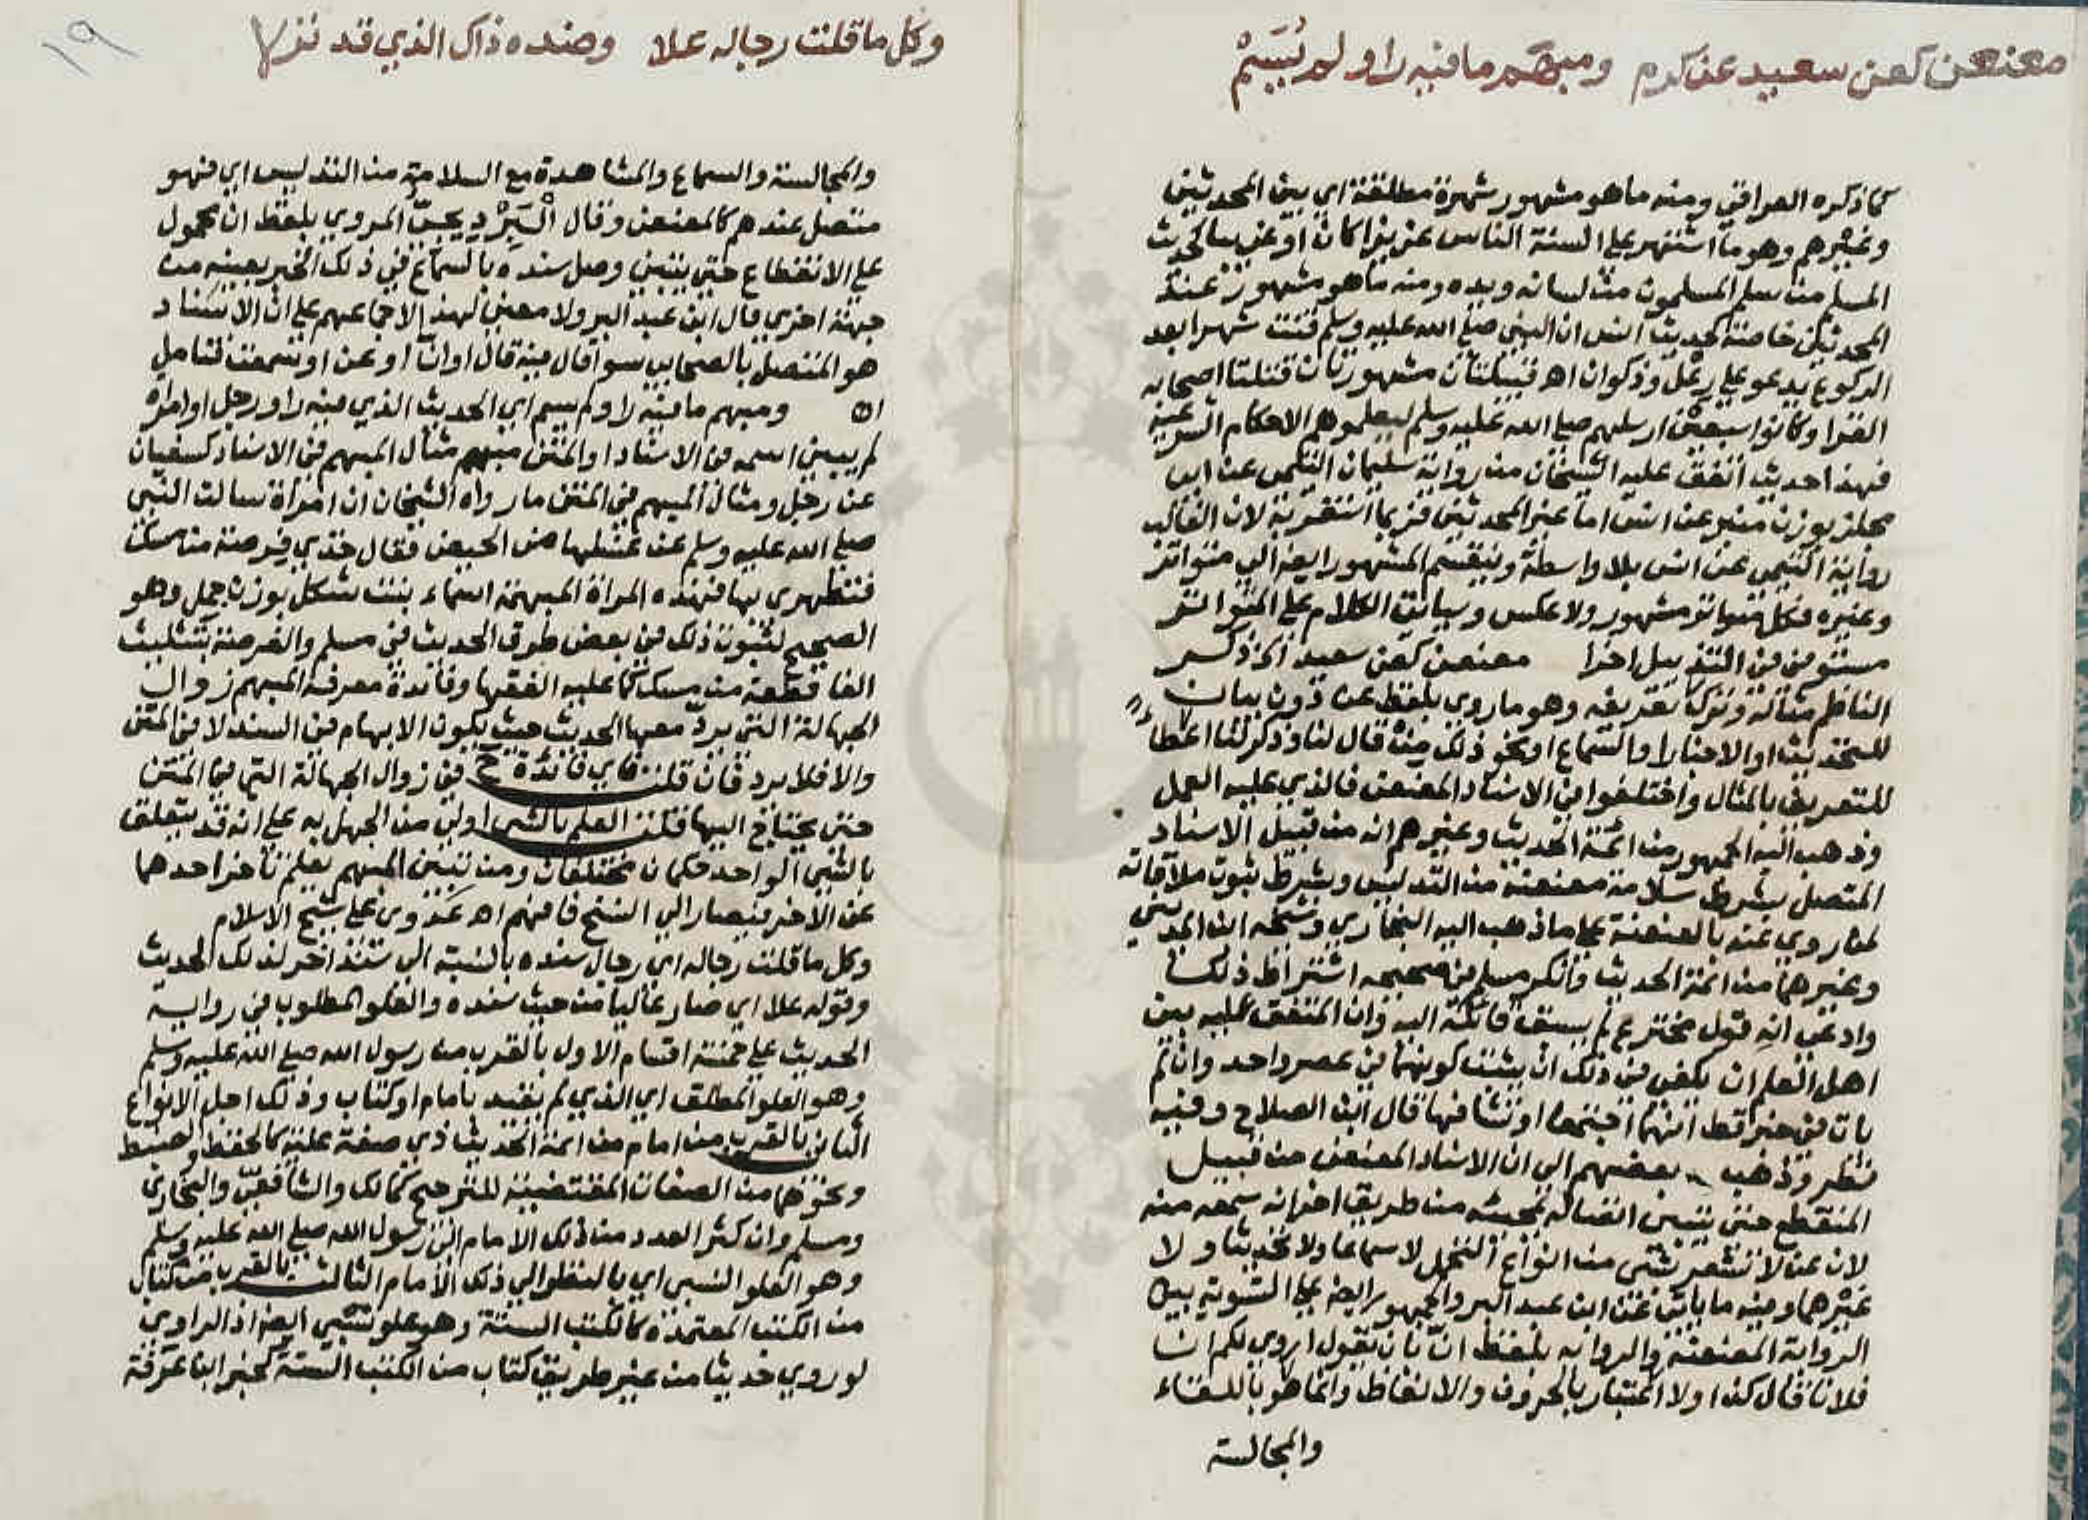 معنعن كعن سعيد عن كرم ومبهم ما فيه راو لم يُسَمْ
كما ذكره العراقي ومنه ما هو مشهور شهرة مطلقة اي بين المحدثين
وغيرهم وهو ما اشتهر على السنة الناس عزيزا كان او غريبا كحديث
المسلم من سلم المسلمون من لسانه ويده ومنه ما هو مشهور عند
المحدثين خاصة كحديث انس ان النبي صلى الله عليه وسلم قنت شهرا بعد
الركوع يدعو على رعل وذكوان اهـ قبيلتان مشهورتان قتلتا اصحابه
القرا وكانوا سبعين ارسلهم صلى الله عليه وسلم ليعلموهم الاحكام الشرعية
فهذا حديث اتفق عليه الشيخان من رواية سليمان التيمي عن ابي
مجلز بوزن منبر عن انس اما غير المحدثين فربما استغربه لان الغالب
رواية التيمي عن انس بلا واسطة وينقسم المشهور ايضا الى متواتر
وغيره فكل متواتر مشهور ولا عكس وسياتي الكلام على المتواتر
مستوفى في التذييل اخرا معنعن كعن سعيد الخ ذكر
الناظم مثاله وترك تعريفه وهو ما روي بلفظ عن دون بيان
للتحديث او الاخبار او السماع او نحو ذلك من قال لنا وذكر لنا اعطاء
للتعريف بالمثال واختلفوا في الاسناد المعنعن فالذي عليه العمل
وذهب اليه الجمهور من ائمة الحديث وغيرهم انه من قبيل الاسناد
المتصل بشرط سلامة معنعنه من التدليس وبشرط ثبوت ملاقاته
لمن روي عنه بالعنعنة على ما ذهب اليه البخاري وشيخه ابن المديني
وغيرهما من ائمة الحديث وانكر مسلم في صحيحه اشتراط ذلك
وادعى انه قول مخترع لم يسبق قائله اليه وان المتفق عليه بين
اهل العلم ان يكفي في ذلك ان يثبت كونهما في عصر واحد وان لم
يات في خبر قط انهما اجتمعا او تشافها قال ابن الصلاح وفيه
نظر وذهب بعضهم الى ان الاسناد المعنعن من قبيل
المنقطع حتى يتبين اتصاله بمجيئه من طريق اخر انه سمعه منه
لان عن لا تشعر بشي من انواع التحمل لا سماعا ولا تحديثا ولا
غيرهما وفيه ما ياتي عن ابن عبد البر والجمهور ايضا على التسوية بين
الرواية المعنعنة والرواية بلفظ انّ كان يقول اروي لكم ان
فلانا قال كذا ولا اعتبار بالحروف والالفاظ وانما هو باللقاء
والمجالسة
وكل ما قلت رجاله علا وضده ذاك الذي قد نزلا
١٩
والمجالسة والسماع والمشاهدة مع السلامة من التدليس اي فهو
متصل عندهم كالمعنعن وقال الْبَرْدِيجيّ المروي بلفظ ان محمول
على الانقطاع حتى يتبين وصل سنده بالسماع في ذلك الخبر بعينه من
جهة اخرى قال ابن عبد البر ولا معنى لهذا لاجماعهم على ان الاسناد
هو المتصل بالصحابي سوا قال فيه قال او انّ او عن او سمعت فتامل
اهـ ومبهم ما فيه راو لم يسم اي الحديث الذي فيه راو رجل او امراة
لم يبين اسمه في الاسناد او المتن مبهم مثال المبهم في الاسناد كسفيان
عن رجل ومثال المبهم في المتن ما رواه الشيخان ان امراة سالت النبي
صلى الله عليه وسلم عن غسلها من الحيض فقال خذي فرصة من مسك
فتطهري بها فهذه المراة المبهمة اسماء بنت شكل بوزن جمل وهو
الصحيح لثبوت ذلك في بعض طرق الحديث في مسلم والفرصة بتثليث
الفا قطعة من مسك كما عليه الفقها وفائدة معرفة المبهم زوال
الجهالة التي يردّ معها الحديث حيث يكون الابهام في السند لا في المتن
والا فلا يرد فان قلت فاي فائدة ح في زوال الجهالة التي في المتن
حتى يحتاج اليها قلت العلم بالشي اولى من الجهل به على انه قد يتعلق
بالشي الواحد حكمان مختلفان ومن تبين المبهم يعلم تاخر احدهما
عن الاخر فيصار الى النسخ فافهم اهـ عَدَوي على شيخ الاسلام
وكل ما قلت رجاله اي رجال سنده بالنسبة الى سند اخر لذلك الحديث
وقوله علا اي صار عاليا من حيث سنده والعلو المطلوب في رواية
الحديث على خمسة اقسام الاول بالقرب من رسول الله صلى الله عليه وسلم
وهو العلو المطلق اي الذي لم يقيد بامام او كتاب وذلك اجل الانواع
الثاني بالقرب من امام من ائمة الحديث ذي صفة علية كالحفظ والضبط
ونحوهما من الصفات المقتضية للترجيح كمالك والشافعيّ والبخاري
ومسلم وان كثر العدد من ذلك الامام الى رسول الله صلى الله عليه وسلم
وهو العلو النسبي اي بالنظر الى ذلك الامام الثالث بالقرب من كتاب
من الكتب المعتمدة كالكتب الستة وهو علو نسبي ايضا اذ الراوي
لو روي حديثا من غير طريق كتاب من الكتب الستة كخبر ابنا عرفة